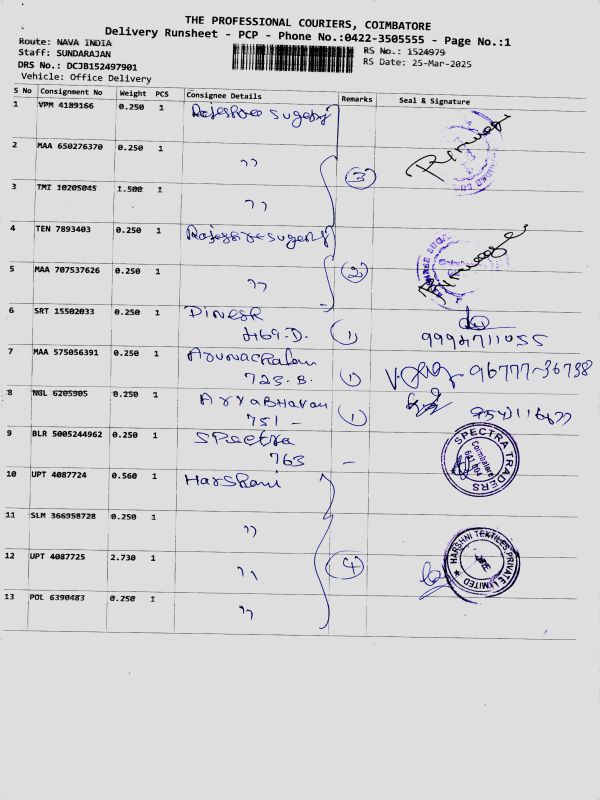 THE PROFESSIONAL COURIERS, COIMBATORE
Delivery Runsheet - PCP - Phone No.:0422-3505555 - Page No.:1
Route: NAVA INDIA
Staff: SUNDARAJAN
DRS No.: DCJB152497901
Vehicle: Office Delivery
RS No.: 1524979
RS Date: 25-Mar-2025
S No Consignment No Weight PCS Consignee Details Remarks Seal & Signature
1 VPM 4189166 0.250 1 Rajeshree sugery
2 MAA 650276370 0.250 1 ''
3
3 TMI 10205045 1.500 1 ''
4 TEN 7893403 0.250 1 Rajeshree sugery
5 MAA 707537626 0.250 1 '' 2
6 SRT 15502033 0.250 1 Dinesh
469.D. 1
7 MAA 575056391 0.250 1 Arunachalam
723.B. 1 96777-36738
8 NGL 6205905 0.250 1 Aryabhavan
751 - 1
9 BLR 5005244962 0.250 1 Spectra
763 -
SPECTRA TRADERS
Coimbatore
641 004
10 UPT 4087724 0.560 1 Harshani
11 SLM 366958728 0.250 1 ''
12 UPT 4087725 2.730 1 '' 4
HARSHNI TEXTILES PRIVATE LIMITED
13 POL 6390483 0.250 1 ''